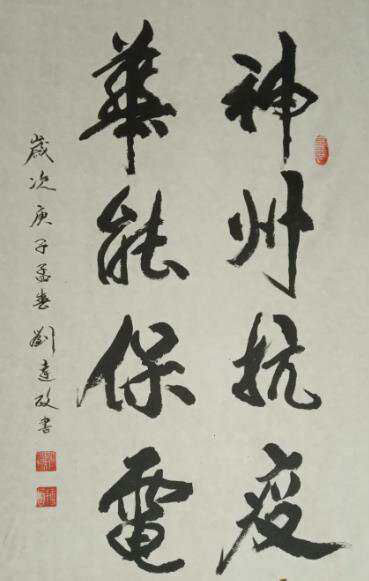 神州抗疫
華能保電
歲次庚子孟春劉達政書